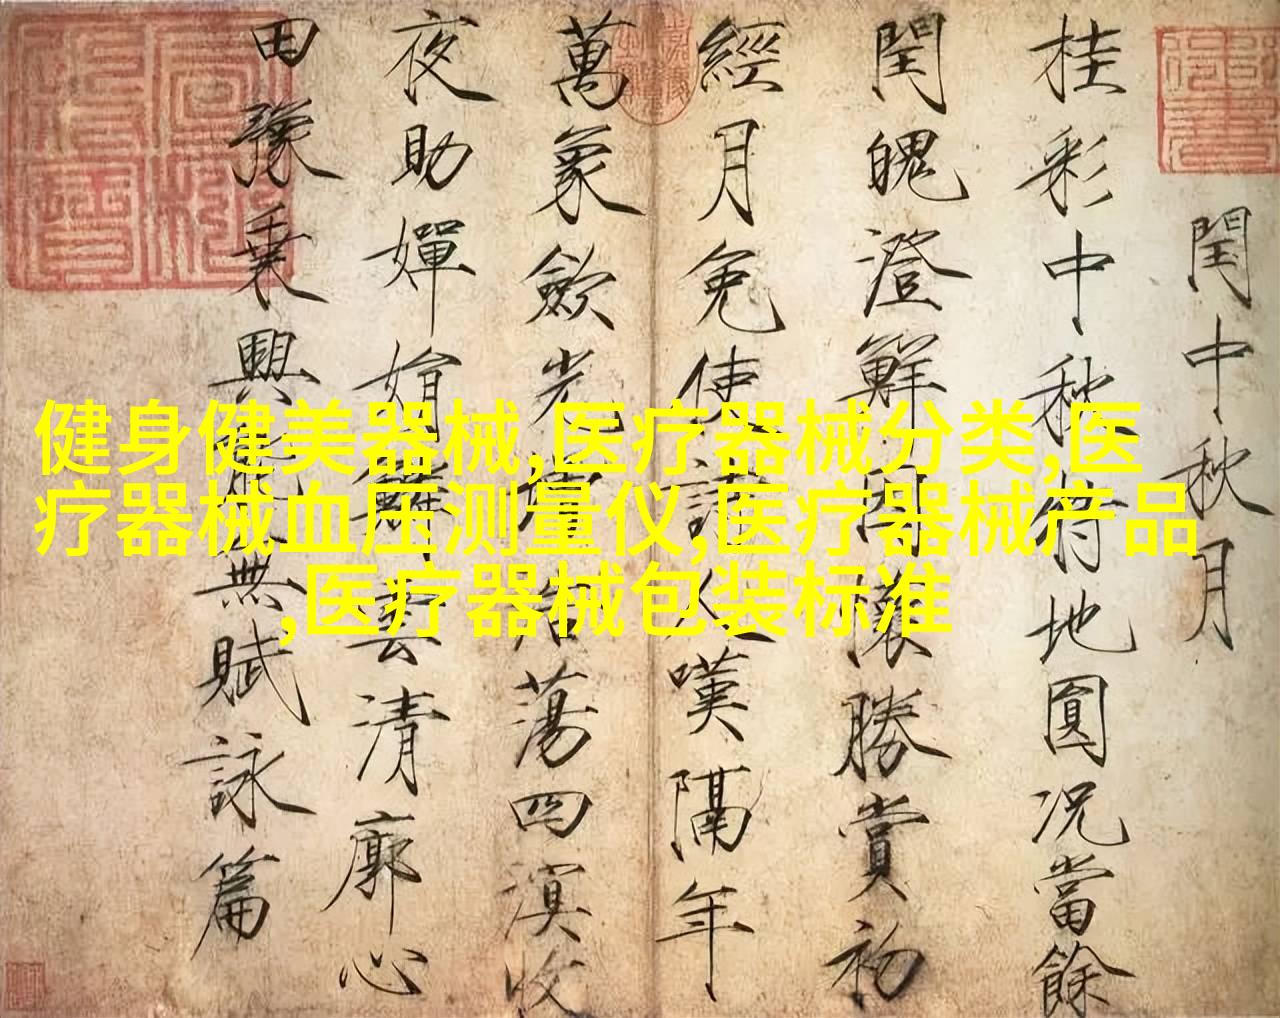 閏中秋月
桂彩中秋特地圓況當餘
閏魄澄鮮因懷勝賞初
經月免使詩人嘆隔年
萬象歛光增浩蕩四溟收
夜助嬋娟鱗雲清廓心
田豫乗興能無賦詠篇
健身健美器械,医疗器械分类,医
疗器械血压测量仪,医疗器械产品
,医疗器械包装标准